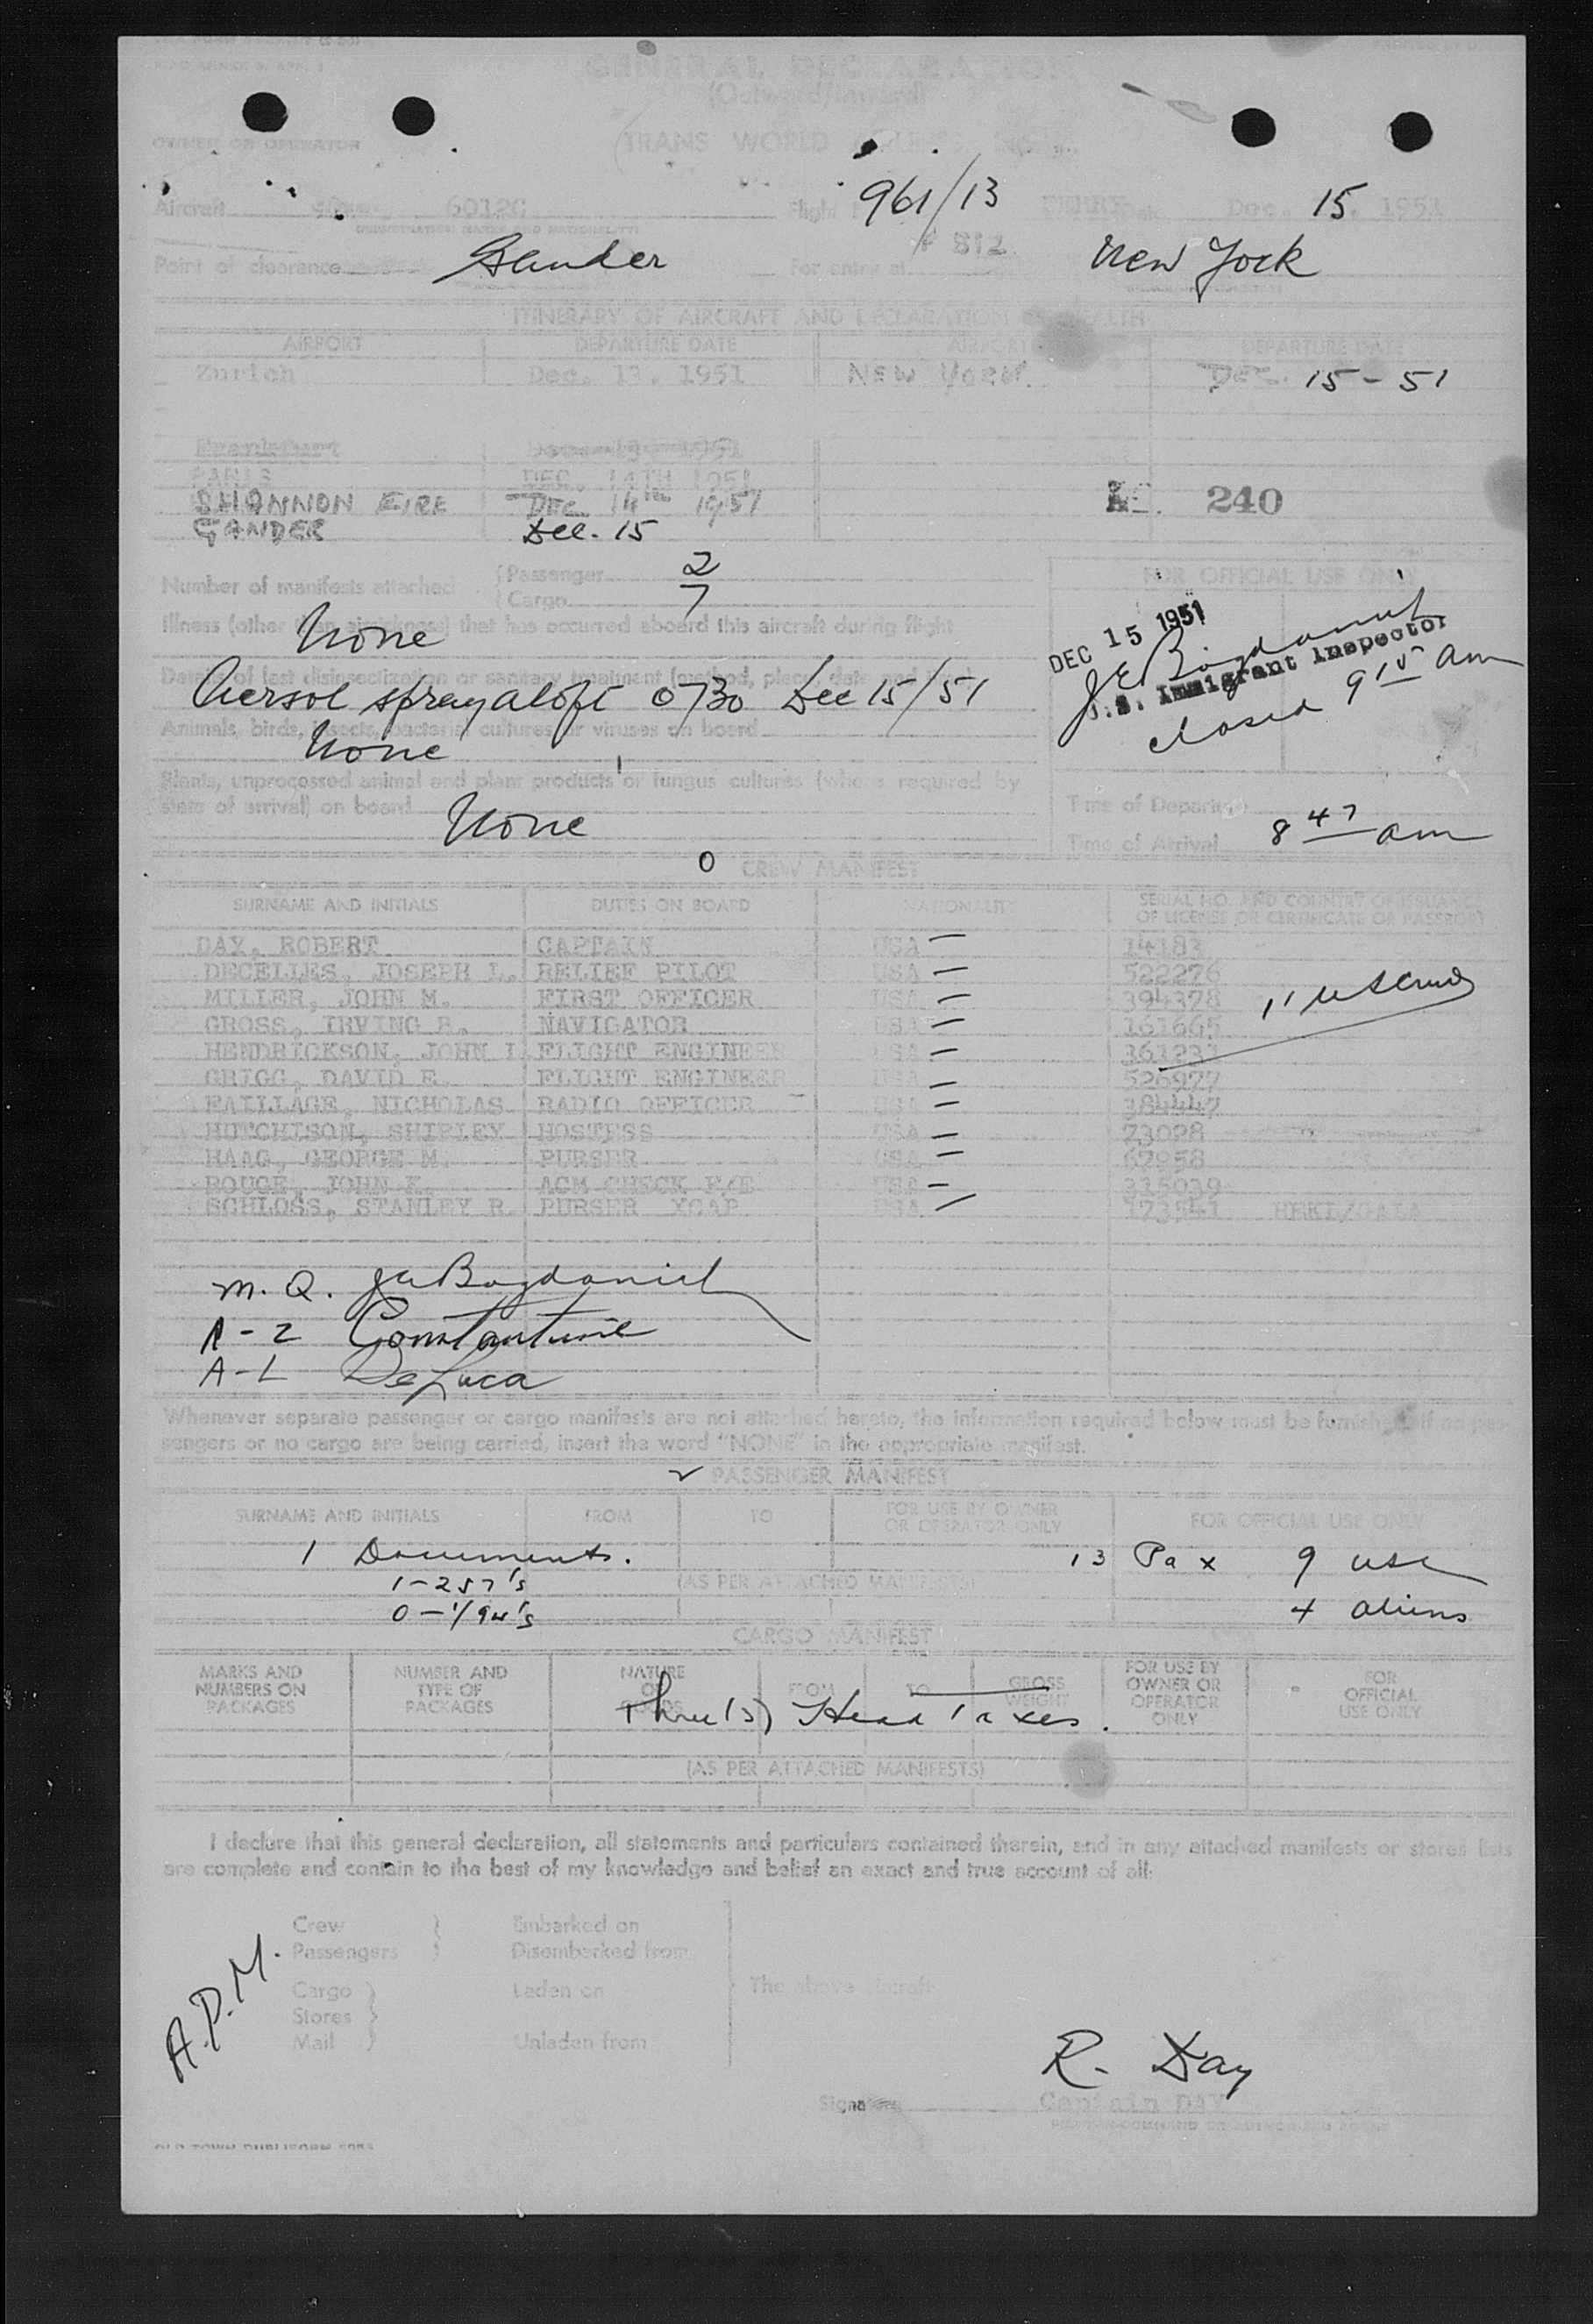 GENERAL DECLARATION
(Outward/Inward)
OWNER OR OPERATOR
TRANS WORLD
Aircraft 6012C Flight 961/13 Dec. 15, 1951
812
Point of clearance Gander For entry at New York
ITINERARY OF AIRCRAFT AND DECLARATION OF HEALTH
AIRPORT DEPARTURE DATE AIRPORT DEPARTURE DATE
Zurich Dec. 13, 1951 NEW YORK DEC. 15-51
Frankfurt Dec. 13 1951
PARIS DEC. 14TH 1951
SHANNON EIRE DEC 14TH 1951
GANDER Dec. 15
240
Number of manifests attached Passenger 2
Cargo 7
FOR OFFICIAL USE ONLY
Illness (other than airsickness) that has occurred aboard this aircraft during flight
None
DEC 15 1951
U.S. Immigrant Inspector
closed 9 15 am
Details of last disinsectization or sanitary treatment (method, place, date
Aersol spray aloft 0730 Dec 15/51
Animals, birds, insects, bacterial cultures or viruses on board
None
Plants, unprocessed animal and plant products or fungus cultures (where required by
state of arrival) on board
None
Time of Departure
Time of Arrival 8 47 am
0 CREW MANIFEST
SURNAME AND INITIALS DUTIES ON BOARD NATIONALITY SERIAL NO. AND COUNTRY OF ISSUANCE
OF LICENSE OR CERTIFICATE OR PASSPORT
DAY, ROBERT CAPTAIN USA 14183
DECELLES, JOSEPH L. RELIEF PILOT USA 522276
MILLER, JOHN M. FIRST OFFICER USA 394378
GROSS, IRVING B. NAVIGATOR USA 161665
HENDRICKSON, JOHN I FLIGHT ENGINEER USA
GRIGG, DAVID E. FLIGHT ENGINEER USA 526977
FAILLACE, NICHOLAS RADIO OFFICER USA 384447
HUTCHISON, SHIRLEY HOSTESS USA 73028
HAAG, GEORGE M. PURSER USA 67958
ROUGE, JOHN K. ACM CHECK F/E USA 315039
SCHLOSS, STANLEY R. PURSER XCAP USA 173541
M. Q.
A-2 Constantine
A-L DeLuca
Whenever separate passenger or cargo manifests are not attached hereto, the information required below must be furnished. If no pas-
sengers or no cargo are being carried, insert the word "NONE" in the appropriate manifest.
PASSENGER MANIFEST
SURNAME AND INITIALS FROM TO FOR USE BY OWNER
OR OPERATOR ONLY FOR OFFICIAL USE ONLY
1 Documents. 13 Pax 9 usc
1-257's (AS PER ATTACHED MANIFESTS)
0-1/94's 4 aliens
CARGO MANIFEST
MARKS AND
NUMBERS ON
PACKAGES
NUMBER AND
TYPE OF
PACKAGES
NATURE
OF
GOODS
FROM TO
GROSS
WEIGHT
FOR USE BY
OWNER OR
OPERATOR
ONLY
FOR
OFFICIAL
USE ONLY
Three (3) Head Taxes.
(AS PER ATTACHED MANIFESTS)
I declare that this general declaration, all statements and particulars contained therein, and in any attached manifests or stores lists
are complete and contain to the best of my knowledge and belief an exact and true account of all:
Crew Embarked on
Passengers Disembarked from
Cargo Laden on The above aircraft
Stores
Mail Unladen from
A.P.M.
R. Day
Signature Captain DAY